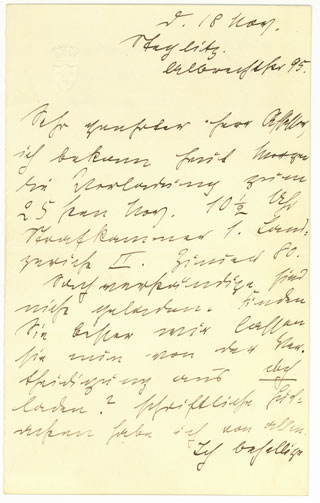 d. 18 Nov.
Steglitz.
Albrechtstr 95.
Sehr geehrter Herr Assessor,
ich bekam heut Morgen
die Vorladung zum
25sten Nov. 10½ Uhr
Strafkammer 1. Land-
gericht II. Zimmer 80.
Sachverständige sind
nicht geladen. Finden
Sie besser wir lassen
sie nun von der Ver-
theidigung aus
laden? schriftliche Gut-
achten habe ich von allen.
Ich behellige